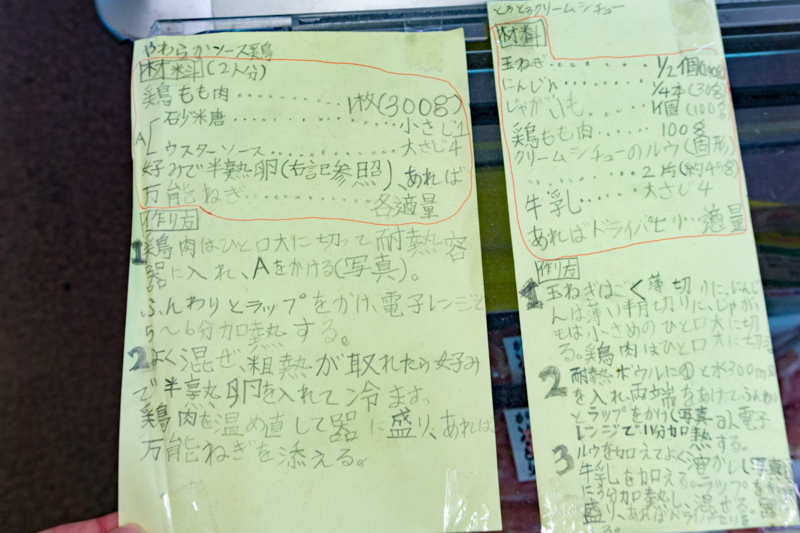 やわらかソース鶏
材料(2人分)
鶏もも肉............1枚(300g)
A 砂糖............小さじ1
ウスターソース............大さじ4
好みで半熟卵(右記参照)、あれば
万能ねぎ............各適量
作り方
1 鶏肉はひと口大に切って耐熱容
器に入れ、Aをかける(写真)。
ふんわりとラップをかけ、電子レンジで
5〜6分加熱する。
2 よく混ぜ、粗熱が取れたら好み
で半熟卵を入れて冷ます。
鶏肉を温め直して器に盛り、あれば
万能ねぎを添える。
とろとろクリームシチュー
材料
玉ねぎ........1/2個(100g)
にんじん........1/4本(30g)
じゃがいも........1個(100g)
鶏もも肉........100g
クリームシチューのルウ(固形)
........2片(約45g)
牛乳........大さじ4
あればドライパセリ..適量
作り方
1 玉ねぎはごく薄切りに、にんじ
んは薄い半月切りに、じゃがい
もは小さめのひと口大に切
る。鶏肉はひと口大に切る。
2 耐熱ボウルに①と水300mL
を入れ、両端をあけてふんわり
とラップをかけ(写真a)、電子
レンジで11分加熱する。
3 ルウを加えてよく溶かし(写真
牛乳を加える。ラップを
に3分加熱し、混ぜる。器
盛り、あればドライパセリを
る。